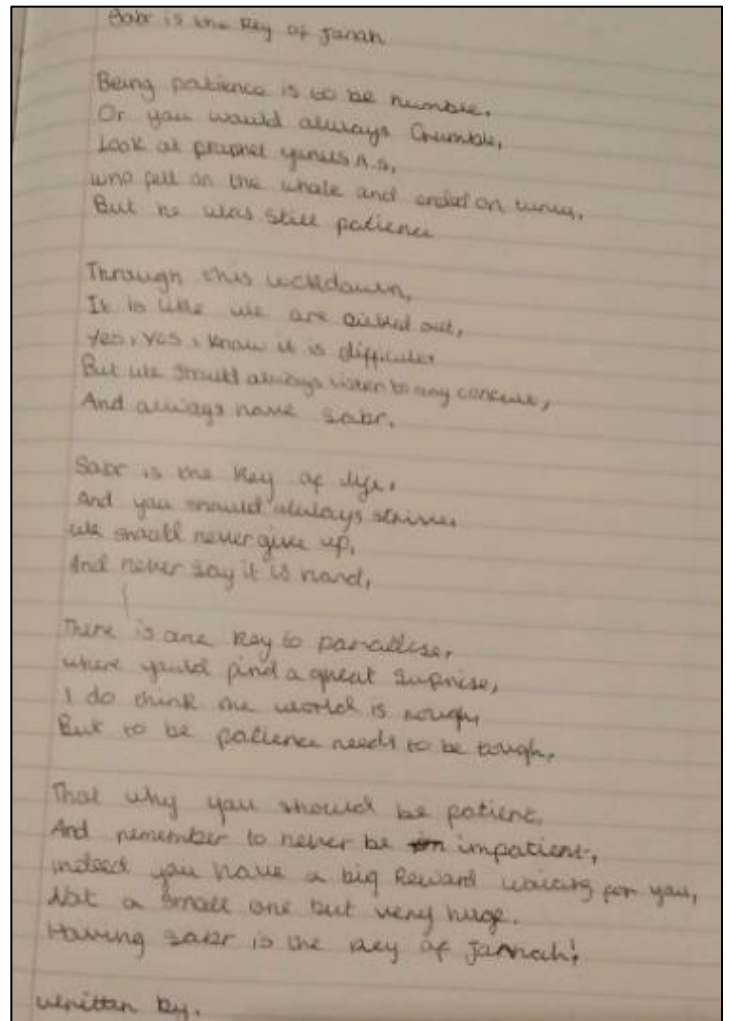 Sabr is the key of Janah
Being patience is to be humble.
Or you would always Crumble,
Look at prophet yunus A.S,
who fell on the whale and ended on
But he was still patience
Through this lockdown,
It is like we are out,
Yes, Yes, I know it is difficult
But we should always listen to any
And always have Sabr.
Sabr is the key of life,
And you should always strive,
we should never give up,
And never say it is hard,
There is one key to paradise,
where you'd find a great suprise,
I do think the world is rough,
But to be patience needs to be tough,
That why you should be patient,
And remember to never be impatient,
indeed you have a big Reward waiting for you,
Not a small one but very huge.
Having sabr is the key of Jannah!
writtan by.